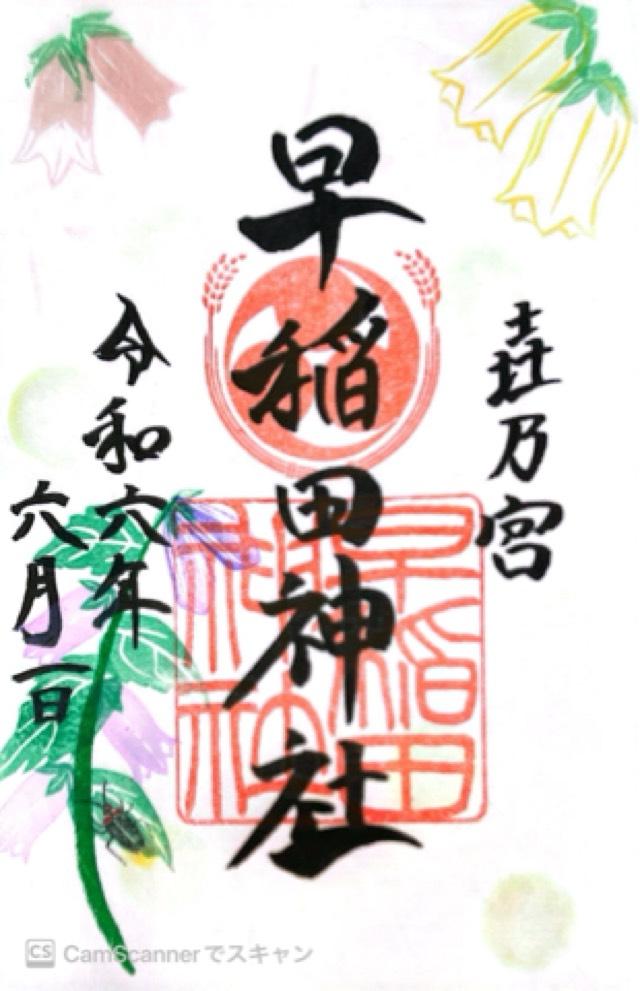 乃宮
早稲田神社
令和六年
六月一日
早稲田
神社
CS CamScannerでスキャン